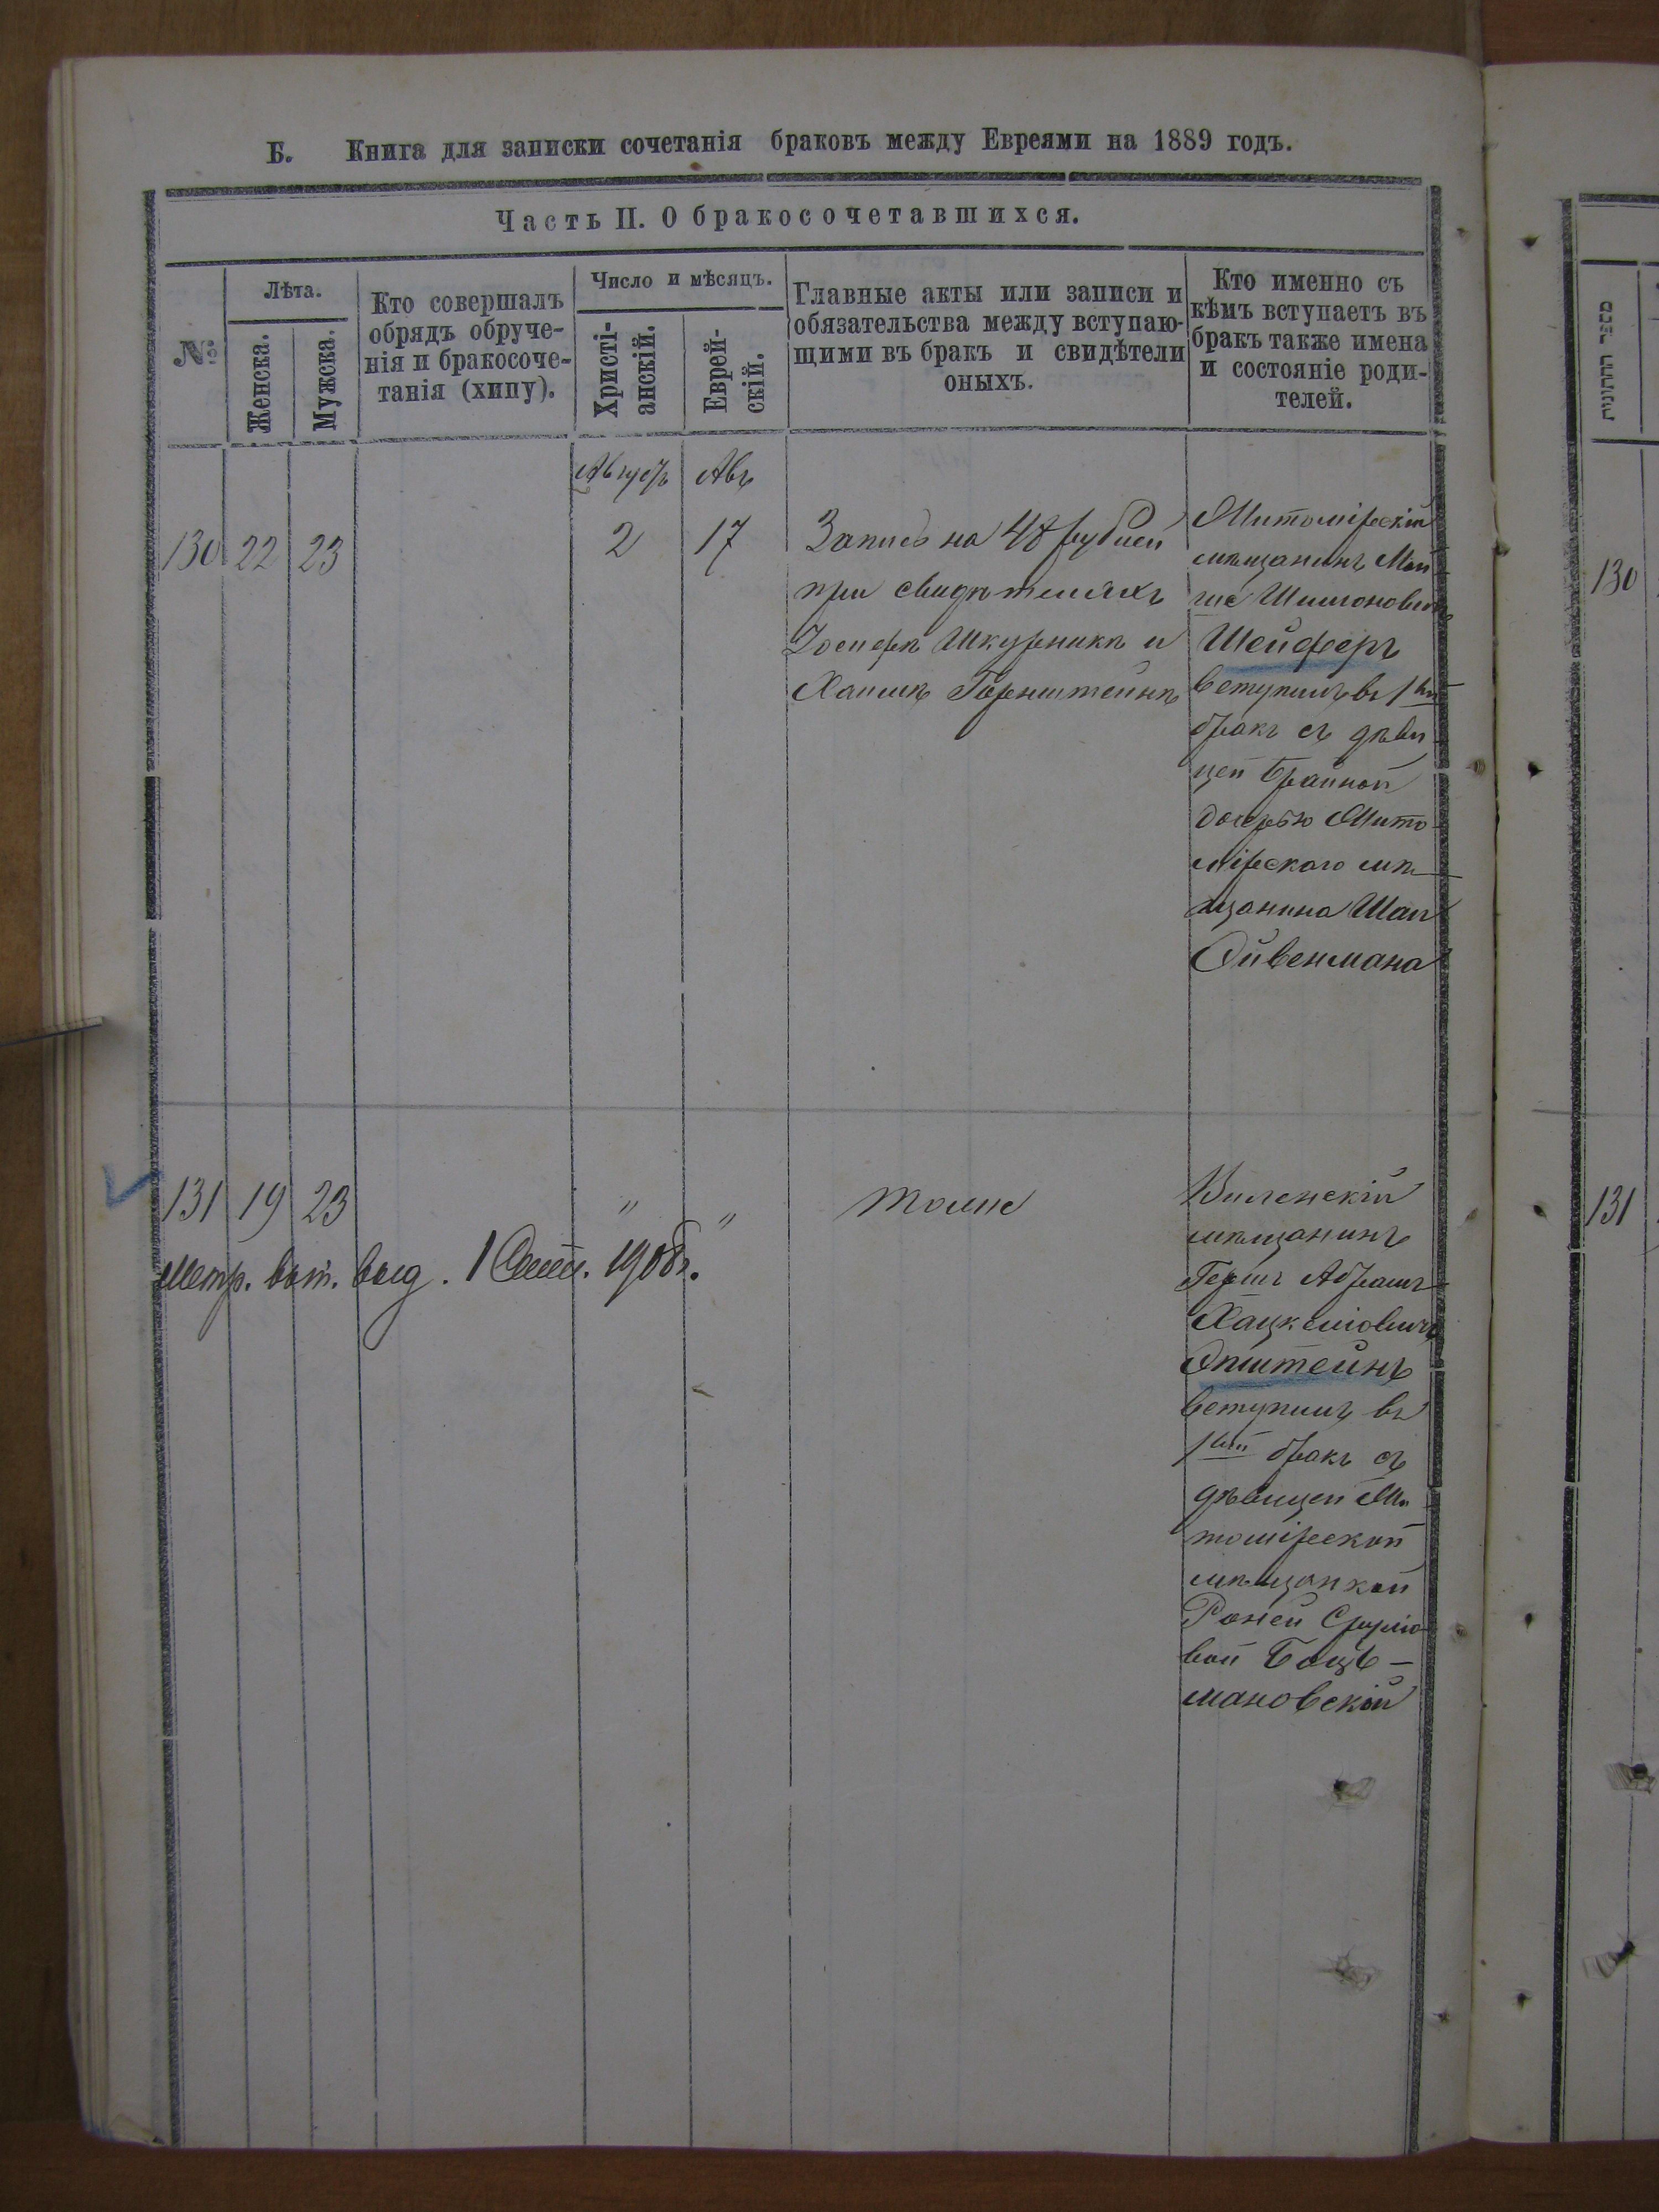 Б. Книга для записки сочетанія браковъ между Евреями на 1889 годъ.
Часть II. О бракосочетавшихся.
№
Лѣта.
Женска.
Мужска.
Кто совершалъ
обрядъ обруче-
нія и бракосоче-
танія (хипу).
Число и мѣсяцъ.
Христі-
анскій.
Еврей-
скій.
Главные акты или записи и
обязательства между вступаю-
щими въ бракъ и свидѣтели
оныхъ.
Кто именно съ
кѣмъ вступаетъ въ
бракъ также имена
и состояніе роди-
телей.
Августъ Авъ
130 22 23 2 17
Запись на 48 рублей
при свидѣтеляхъ
Іосифѣ Шкурникѣ и
Хаимѣ Горенштейнѣ
Житомірскій
мѣщанинъ Мой
ше Шимоновичъ
Шейферъ
вступилъ въ 1ый
бракъ съ дѣви
цей Брайной
дочерью Жито
мірскаго мѣ
щанина Шаи
Ойвенмана
131 19 23 " "
тоже
Виленскій
мѣщанинъ
Гершъ Абрамъ
Хацкеліовичъ
Эпштейнъ
вступилъ въ
1ый бракъ съ
дѣвицей Жи
томірской
мѣщанкой
Рохей Сруліо
вой Боцъ-
мановскій
Метр. вып. выд. 1 Сент. 1908г.
מספר החתונות
130
131